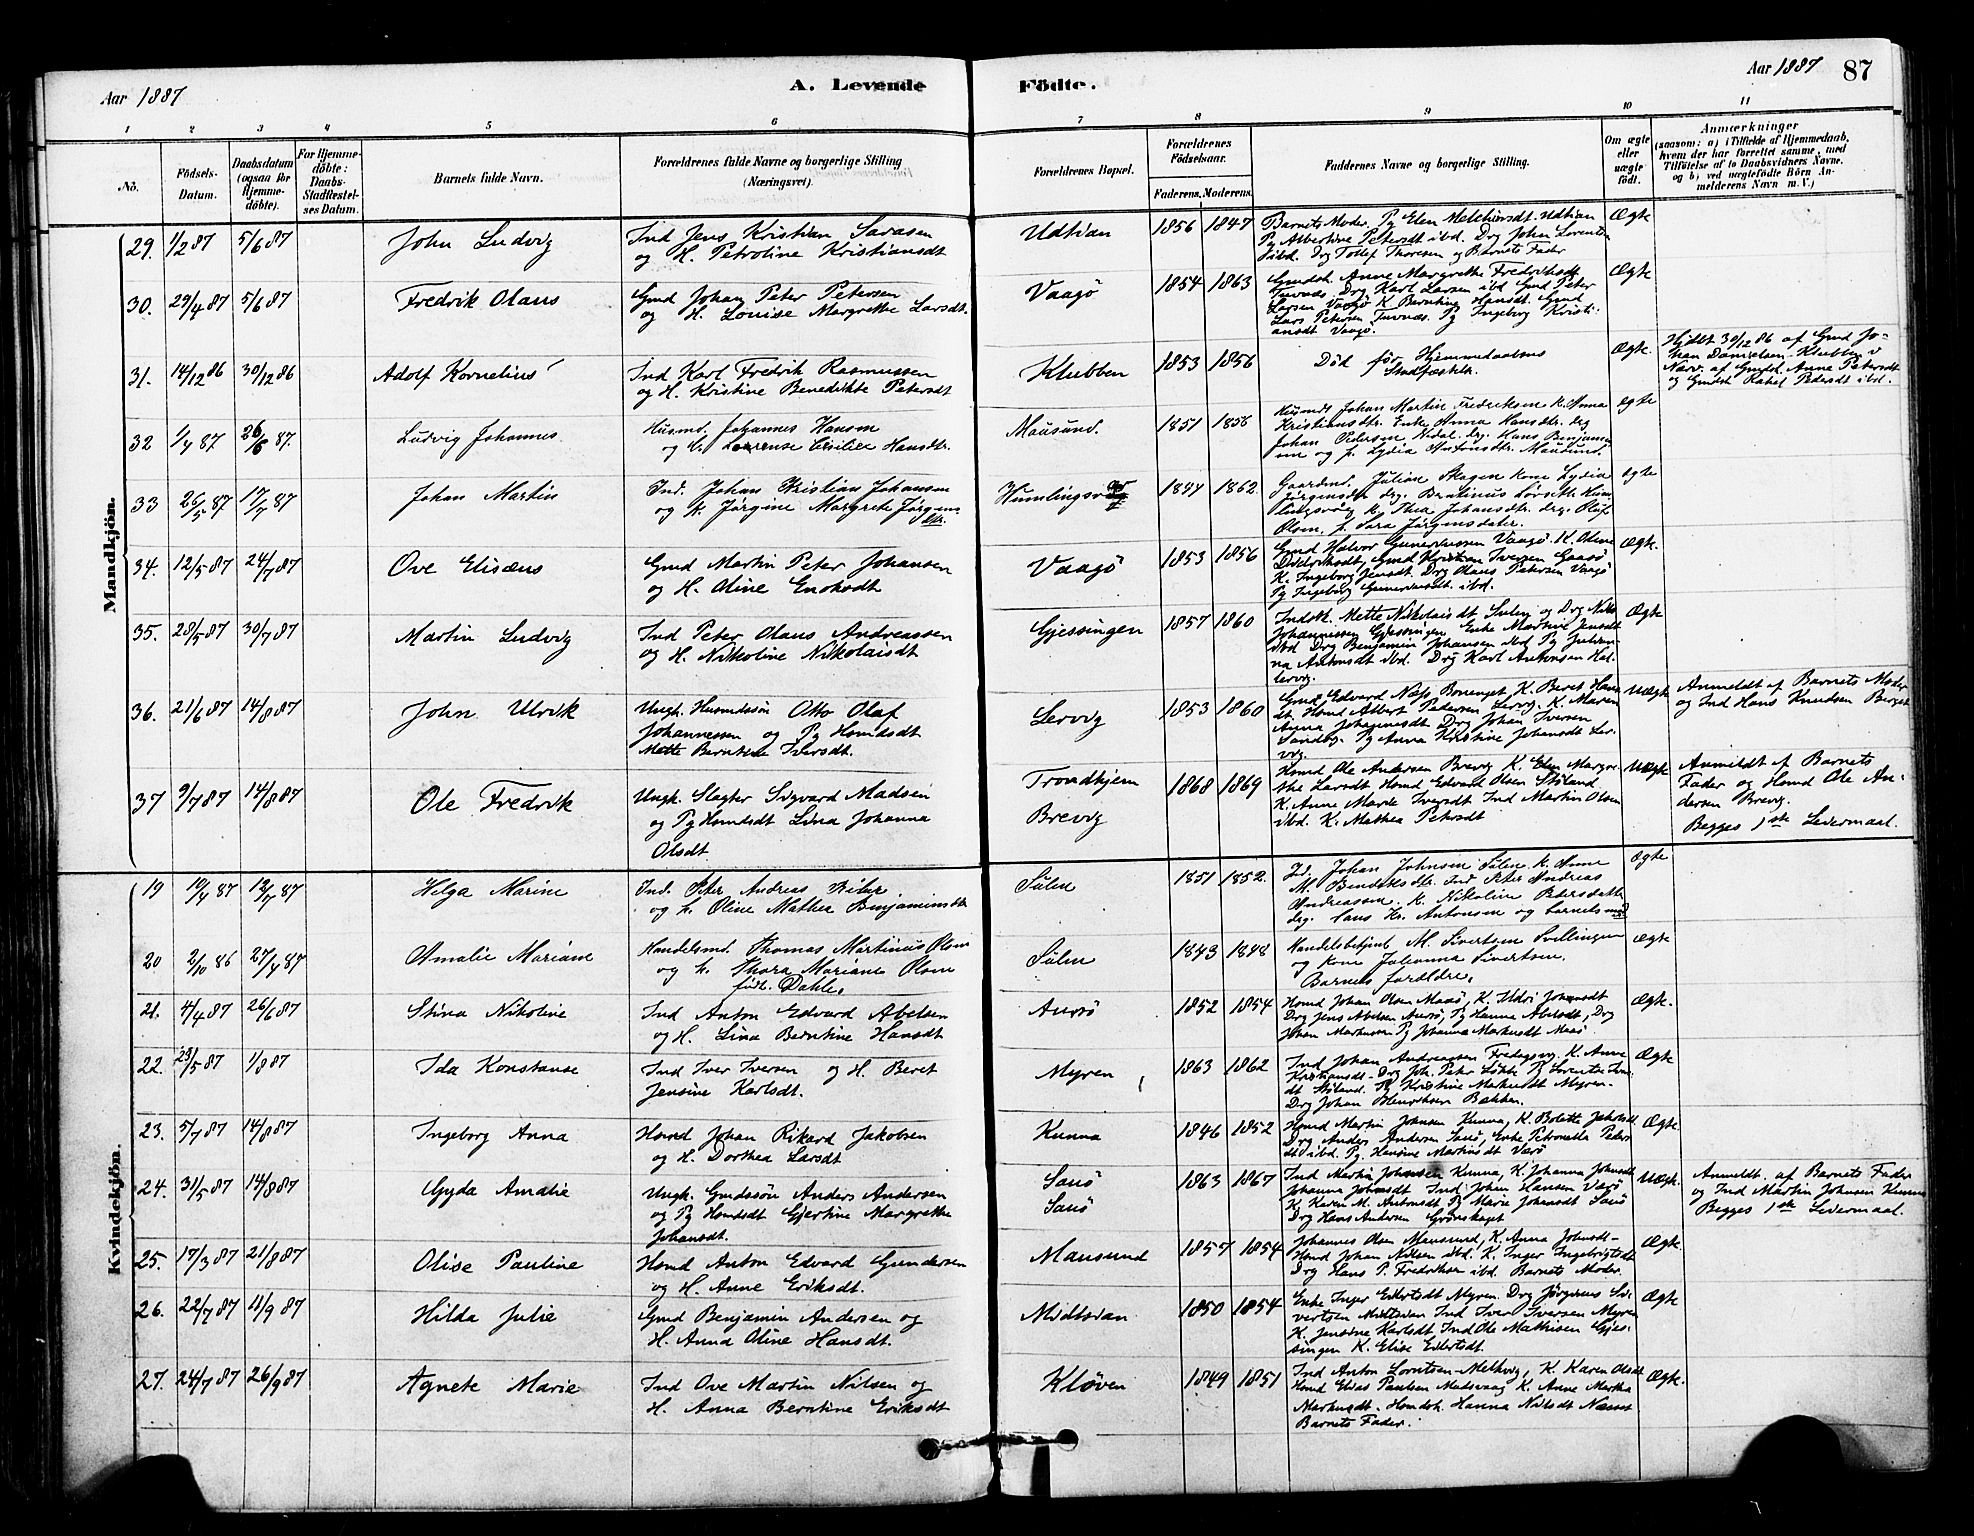 Aar 1887
A. Levende Födte.
Aar 1887 87
1 2 3 4 5 6 7 8 9 10 11
No.
Födsels-Datum.
Daabsdatum (ogsaa for Hjemme-döbte).
For Hjemme-döbte: Daabs-Stadfæstel-ses Datum.
Barnets fulde Navn.
Forældrenes fulde Navne og borgerlige Stilling (Næringsvei).
Forældrenes Bopæl.
Forældrenes Födselsaar.
Faderens. Moderens.
Faddernes Navne og borgerlige Stilling.
Om ægte eller uægte födt.
Anmærkninger
(saasom: a) i Tilfælde af Hjemmedaab,
hvem der har forrettet samme, med
Tilföielse af to Daabsvidners Navne.
og b) ved uægtefödte Börn An-
melderens Navn m. V.)
Mandkjön.
29. 1/2 87 5/6 87 John Ludvig
Ind Jens Kristian Sarasen
og H. Petroline Kristiansdt
Udtian 1856 1847
Barnets Moder. Pg Elen Melchiorsdt Udtian
Pg Albertine Petersdt ibd. Drg Johan Lorentsen
ibd. Drg Tollef Thoresen og Barnets Fader
Ægte
30. 29/4 87 5/6 87 Fredrik Olaus
Gmd Johan Peter Petersen
og H. Louise Margrethe Larsdt.
Vaagö 1854 1863
Gmdsk. Anne Margrethe Fredriksdt
Tuvnæs. Drg Karl Larsen ibd Gmd Peter
Larsen Vaagø K. Berntine Hansdt. Gmd
Lars Petersen Tuvnæs. Pg Ingeborg Kristi-
ansdt Vaagø.
Ægte
31. 14/12 86 30/12 86 Adolf Kornelius
Ind Karl Fredrik Rasmussen
og H. Kristine Benedikte Petersdt
Klubben 1853 1856
Död før Hjemmedaabens
Stadfæstelse
Ægte.
Hjdöbt 30/12 86 af Gmd Jo-
han Danielsen Klubben i
Nærv. af Gmfd. Anne Petersdt
og Gmdsk Rakel Pedersdt ibd.
32 1/4 87 26/6 87. Ludvig Johannes
Husmd. Johannes Hansen
og h. Laurense Cecilie Hansdtr.
Mausund. 1851 1856
Husmdt Johan Martin Fredriksen k. Anna
Kristiansdtr. Enke Anna Hansdtr. drg
Johan Pedersen Nidal. drg. Hans Benjamin-
sen og p. Lydia Antonsdtr. Mausund.
ægte
33 26/5 87 17/7 87 Johan Martin
Ind. Johan Kristian Johansen
og h. Jörgine Margrete Jörgens-
dtr.
Humlingsvåg 1847 1862
Gaardmd. Julian Skagen kone Lydia
Jörgensdtr drg. Berntinus Lövseth Hum
lingsvåg k. Thea Johansdtr. drg. Oluf
Olsen p. Sara Jörgensdatter.
ægte
34. 12/5 87 24/7 87 Ove Elisæus
Gmd Martin Peter Johansen
og H. Oline Enoksdt
Vaagö 1853 1856
Gmd Halvor Gunerussen Vaagø. K. Oline
Didrikdt, Gmd Kristian Iversen Gaasø
K. Ingeborg Jensdt. Drg Olaus Petersen Vaagö
Pg Ingeborg Gunerusdt. ibd.
Ægte.
35. 28/5 87 30/7 87 Martin Ludvig
Ind Peter Olaus Andreassen
og H. Nikoline Nikolaisdt
Gjessingen 1857 1860
Indsk. Mette Nikolaisdt Sulen og Drg Nils
Johannessen Gjessingen Enke Martine Jensdt
ibd Drg Benjamin Johansen ibd Pg Julian-
na Antonsdt ibd. Drg Karl Antonsen Kal-
lervg.
Ægte
36. 21/6 87 14/8 87 John Ulrik
Ungk. Husmdssön Otto Olaf
Johannessen og Pg Husmdsdt
Mette Berntine Iversdt.
Lervig 1853 1860
Gmd Edvard Næss Bonenget K. Beret Hans
dt. Hsmd Albert Pedersen Lervg. K. Maren
Anna Johannesdt Drg Johan Iversen
Sandvg. Pg Anna Kristine Johansdt Ler-
vig.
Uægte
Anmeldt af Barnets Moder
og Ind Hans Knudsen Berget
37 9/7 87 14/8 87 Ole Fredrik
Ungk. Slagter Sigvard Madsen
og Pg Hsmdsdt Lina Johanna
Olsdt.
Trondhjem
Brevig 1868 1869
Hsmd Ole Andersen Brevig K. Elen Margre-
the Larsdt Hsmd Edvard Olsen Stöland
K. Anne Marie Iversdt Ind Martin Olsen
ibd. K. Mathea Petersdt
Uægte
Anmeldt af Barnets
Fader og Hsmd Ole An-
dersen Brevg.
Begges 1ste Leiermaal.
Kvindekjön.
19 19/4 87 12/7 87 Helga Marine
Ind. Peter Andreas
og h. Oline Mathea Benjaminsdtr
Sulen 1851 1852.
Id. Johan Johnsen Sulen k. Anne
M. Bendiksdtr. Ind Peter Andreas
Andreassen. k. Nikoline Peersdatter
drg. Hans Kr. Antonsen og barnets mod
ægte
20 2/10 86 27/4 87 Amalie Mariane
Handelsmd. Thomas Martinus Olsen
og h. Thora Mariane Olsen
född. Dahle.
Sulen 1843 1848
Handelsbetjent M. Sivertsen Svellingen
og kone Johanna Sivertsen.
Barnets foreldre.
ægte
21. 4/4 87 26/6 87 Stina Nikoline
Ind Anton Edvard Abelsen
og H. Lina Berntine Hansdt
Aursö 1852 1854
Hsmd Johan Olsen Maasö, K. Udri Johansdt
Drg Jens Abelsen Aursö, Pg Hanna Abelsdt, Drg
Johan Markussen Pg Johanna Markusdt Maasö
Ægte.
22. 23/5 87 1/8 87 Ida Konstanse
Ind Iver Iversen og H. Beret
Jensine Karlsdt.
Myren 1863 1862
Ind Johan Andreassen Fredagsvg. K. Anne
Kristiansdt. Drg Joh. Peter Pg Lorentse Iver
dt Stöland. Pg Kristine Markusdt Myren.
Drg Johan Henriksen Bakken.
Ægte
23. 5/7 87 14/8 87 Ingeborg Anna
Hsmd Johan Rikard Jakobsen
og H. Dorthea Larsdt
Kunna 1846 1852
Hsmd Martin Johnsen Kunna, K. Bolette Jakobsdt
Drg Anders Andersen Sauö, Enke Petronelle Peder
dt ibd. Pg Hansine Martinsdt Varö
Ægte.
24. 31/5 87 14/8 87 Gyda Amalie
Ungk. Gmdssön Anders Andersen
og Pg Hsmdsdt Gjertine Margrethe
Johansdt.
Sauö
Sauö 1863 1867
Ind Martin Johansen Kunna, K. Johanna Johansdt
Johanna Johansdt Ind Johan Hansen Varö
K. Karen M. Antonsdt Pg Marie Johansdt Sauö
Drg Hans Andersen Grönskaget
Uægt.
Anmeldt. af Barnets Fader
og Ind Martin Johnsen Kunna
Begges 1ste Leiermaal.
25. 17/3 87 21/8 87 Olise Pauline
Hsmd Anton Edvard Gundersen
og H. Anne Eriksdt.
Mausund 1857 1854
Johannes Olsen Mausund, K. Anna Johnsdt-
Hsmd Johan Nilsen ibd. K. Inger Ingebrigtsdt
Drg Hans P. Fredriksen ibd. Barnets Moder.
Ægte.
26. 22/7 87 11/9 87 Hilda Julie
Gmd Benjamin Andersen og
H. Anna Oline Hansdt.
Midtsian 1850 1854
Enke Inger Eilertsdt Myren. Drg Jörginus Si-
vertsen Midtsian Ind Iver Iversen Myren
K. Jensine Karlsdt. Ind Ole Mathisen Gjes-
singen K. Elise Eilertsdt.
Ægte
27. 24/7 87 26/9 87 Agnete Marie
Ind Ove Martin Nilsen og
H. Anna Berntine Eriksdt
Kløven 1849 1851
Ind Anton Lorntsen Melkvig, K. Karen Olsdt
Hsmd Elias Paulsen Madsvaag K. Anne Martha
Markusdt. Hsmdsk. Hanna Nilsdt Næsset
Barnets Fader.
Ægte.